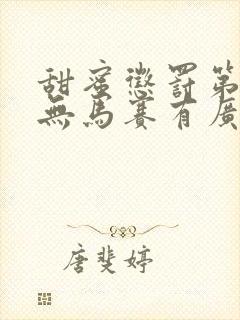 甜蜜懲罰第
無馬賽有廣
唐斐婷